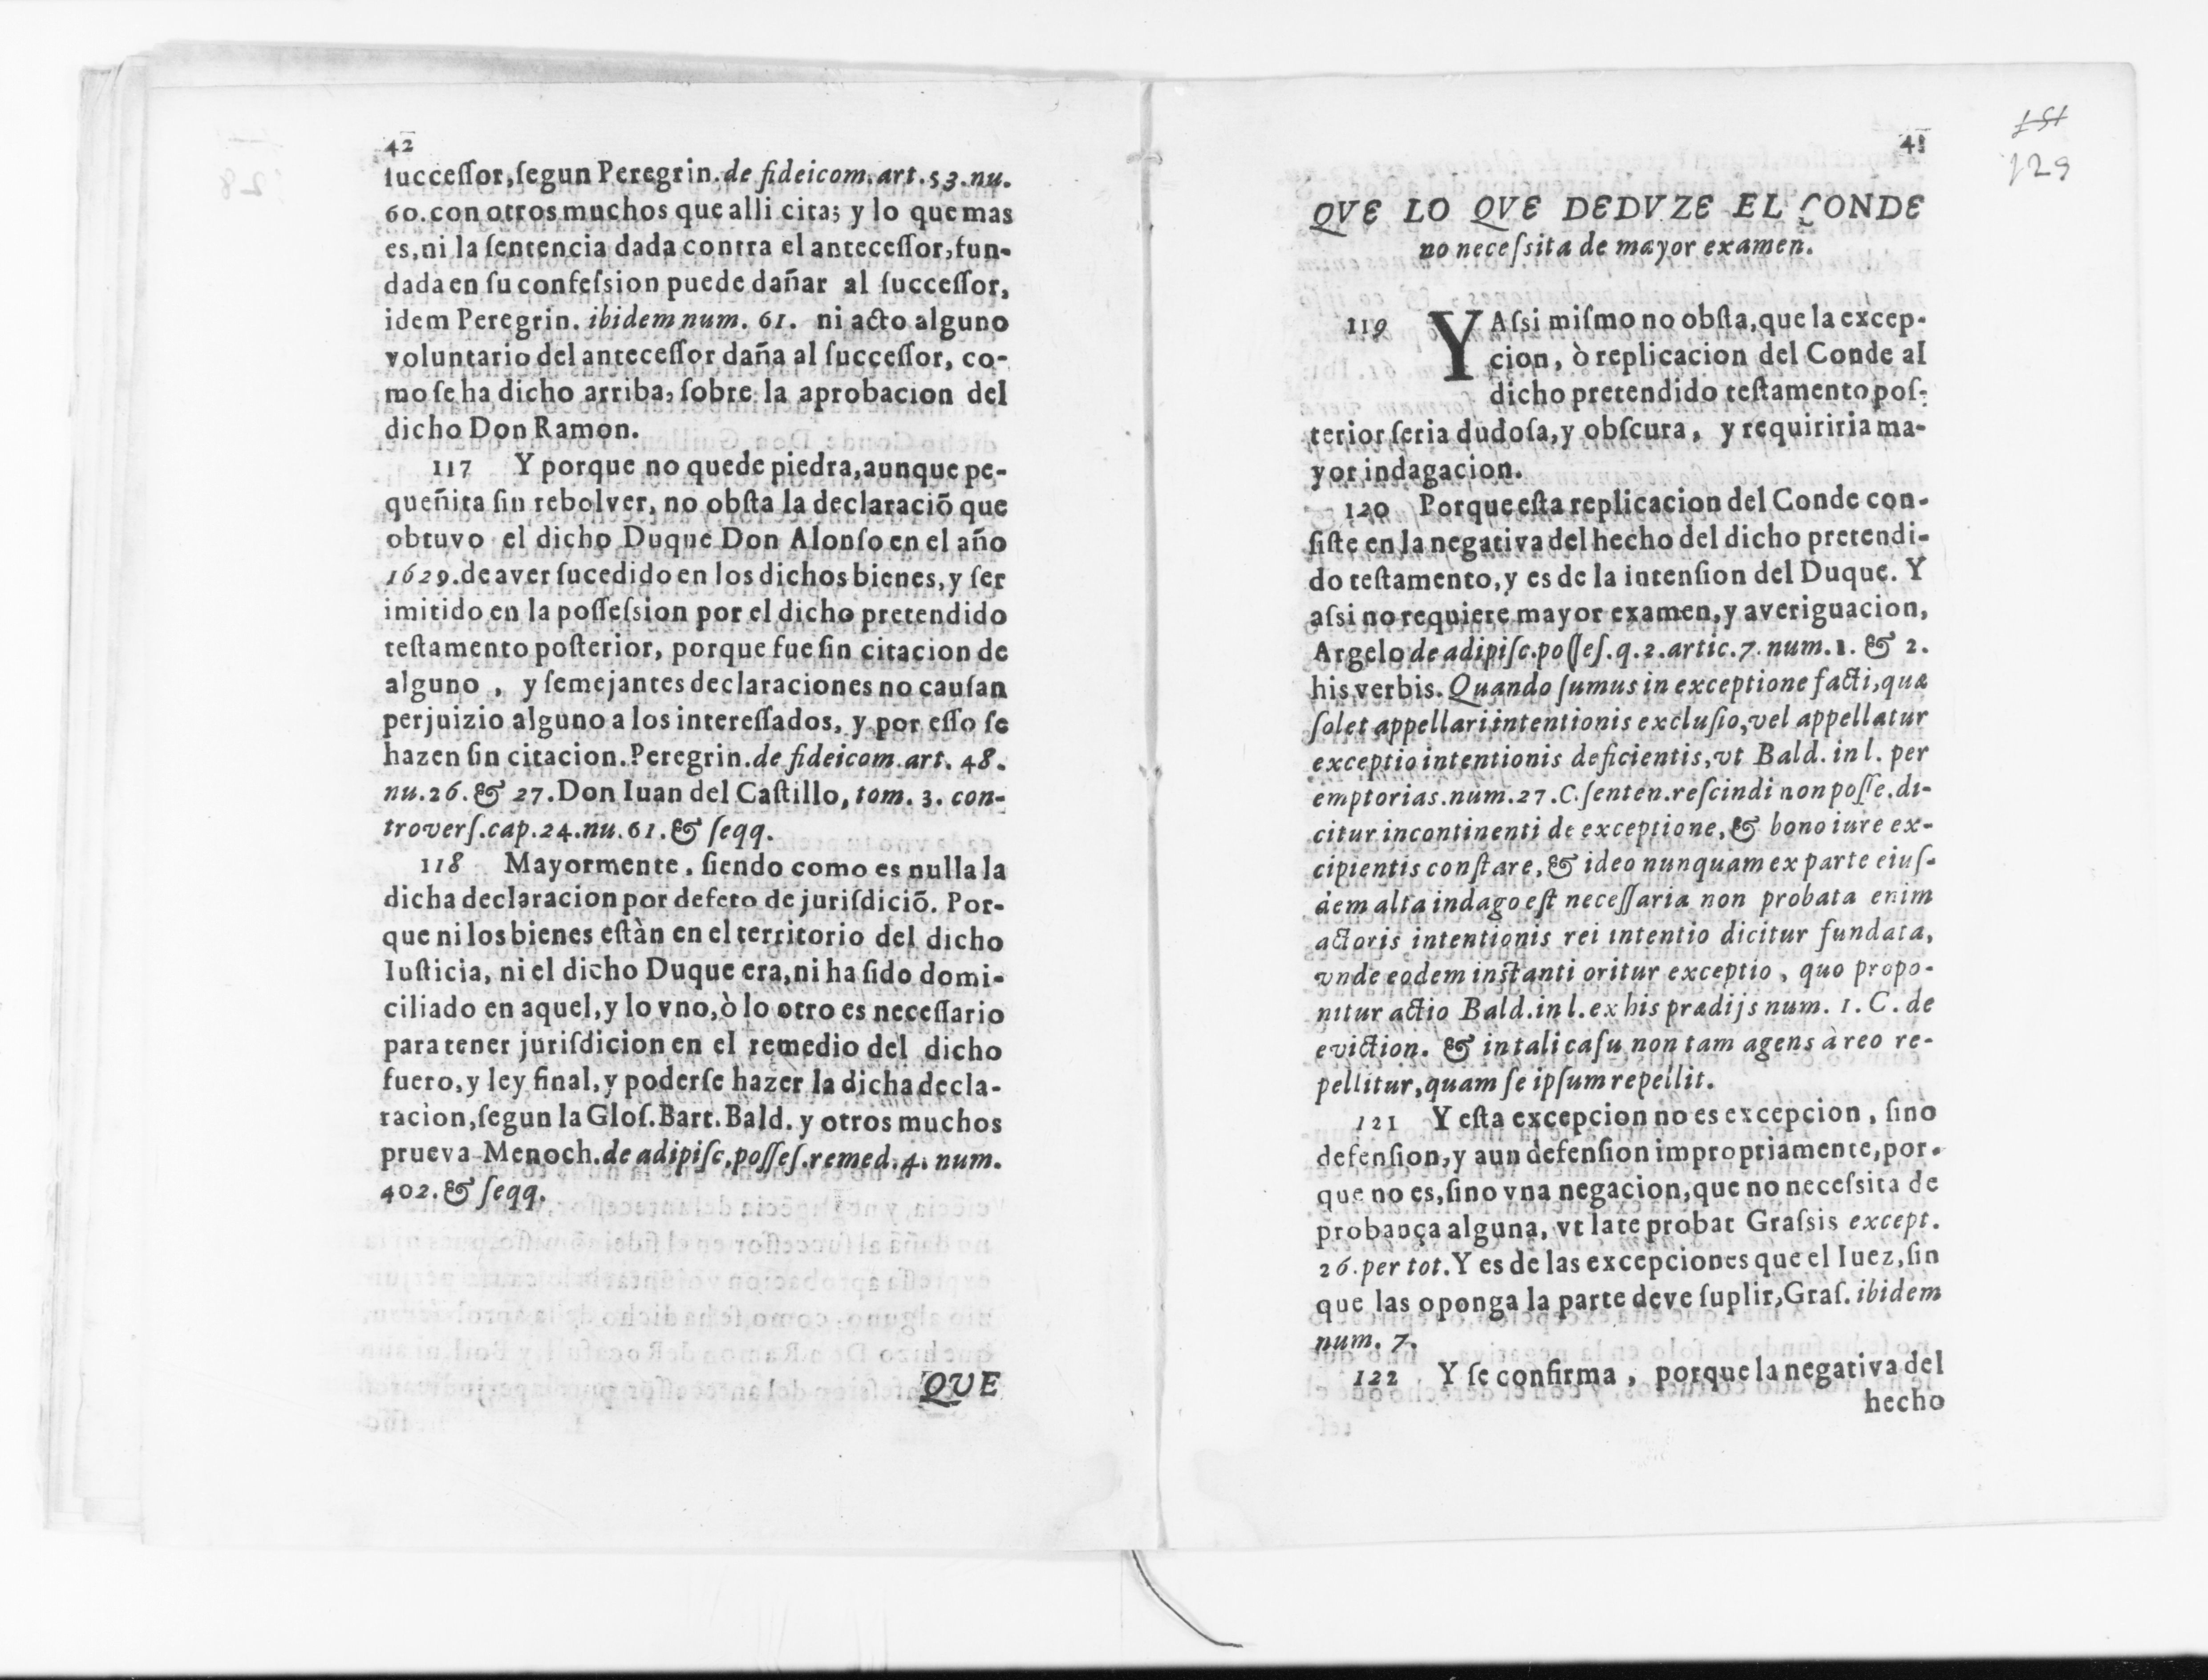 42
ſucceſſor, ſegun Peregrin. de fideicom. art. 53. nu.
60. con otros muchos que alli cita; y lo que mas
es, ni la ſentencia dada contra el anteceſſor, fun-
dada en ſu confeſsion puede dañar al ſucceſſor,
idem Peregrin. ibidem num. 61. ni acto alguno
voluntario del anteceſſor daña al ſucceſſor, co-
mo ſe ha dicho arriba, ſobre la aprobacion del
dicho Don Ramon.
117 Y porque no quede piedra, aunque pe-
queñita ſin rebolver, no obſta la declaraciõ que
obtuvo el dicho Duque Don Alonſo en el año
1629. de aver ſucedido en los dichos bienes, y ſer
imitido en la poſſeſsion por el dicho pretendido
teſtamento poſterior, porque fue ſin citacion de
alguno, y ſemejantes declaraciones no cauſan
perjuizio alguno a los intereſſados, y por eſſo ſe
hazen ſin citacion. Peregrin. de fideicom. art. 48.
nu. 26. & 27. Don Iuan del Caſtillo, tom. 3. con-
troverſ. cap. 24. nu. 61. & ſeqq.
118 Mayormente, ſiendo como es nulla la
dicha declaracion por defeto de juriſdiciõ. Por-
que ni los bienes eſtàn en el territorio del dicho
Iuſticia, ni el dicho Duque era, ni ha ſido domi-
ciliado en aquel, y lo vno, ò lo otro es neceſſario
para tener juriſdicion en el remedio del dicho
fuero, y ley final, y poderſe hazer la dicha decla-
racion, ſegun la Gloſ. Bart. Bald. y otros muchos
prueva Menoch. de adipiſc. poſſeſ. remed. 4. num.
402. & ſeqq.
QUE
151
129
41
QVE LO QVE DEDVZE EL CONDE
no neceſsita de mayor examen.
119 YAſsi miſmo no obſta, que la excep-
cion, ò replicacion del Conde al
dicho pretendido teſtamento poſ-
terior ſeria dudoſa, y obſcura, y requiriria ma-
yor indagacion.
120 Porque eſta replicacion del Conde con-
ſiſte en la negativa del hecho del dicho pretendi-
do teſtamento, y es de la intenſion del Duque. Y
aſsi no requiere mayor examen, y averiguacion,
Argelo de adipiſc. poſſeſ. q. 2. artic. 7. num. 1. & 2.
his verbis. Quando ſumus in exceptione facti, quæ
ſolet appellari intentionis excluſio, vel appellatur
exceptio intentionis deficientis, vt Bald. in l. per
emptorias. num. 27. C. ſenten. reſcindi non poſſe. di-
citur incontinenti de exceptione, & bono iure ex-
cipientis conſtare, & ideo nunquam ex parte eiuſ-
dem alta indago eſt neceſſaria non probata enim
actoris intentionis rei intentio dicitur fundata,
vnde eodem inſtanti oritur exceptio, quo propo-
nitur actio Bald. in l. ex his prædijs num. 1. C. de
eviction. & in tali caſu non tam agens à reo re-
pellitur, quam ſe ipſum repellit.
121 Y eſta excepcion no es excepcion, ſino
defenſion, y aun defenſion impropriamente, por-
que no es, ſino vna negacion, que no neceſsita de
probança alguna, vt late probat Graſsis except.
26. per tot. Y es de las excepciones que el Iuez, ſin
que las oponga la parte deve ſuplir, Graſ. ibidem
num. 7.
122 Y ſe confirma, porque la negativa del
hecho